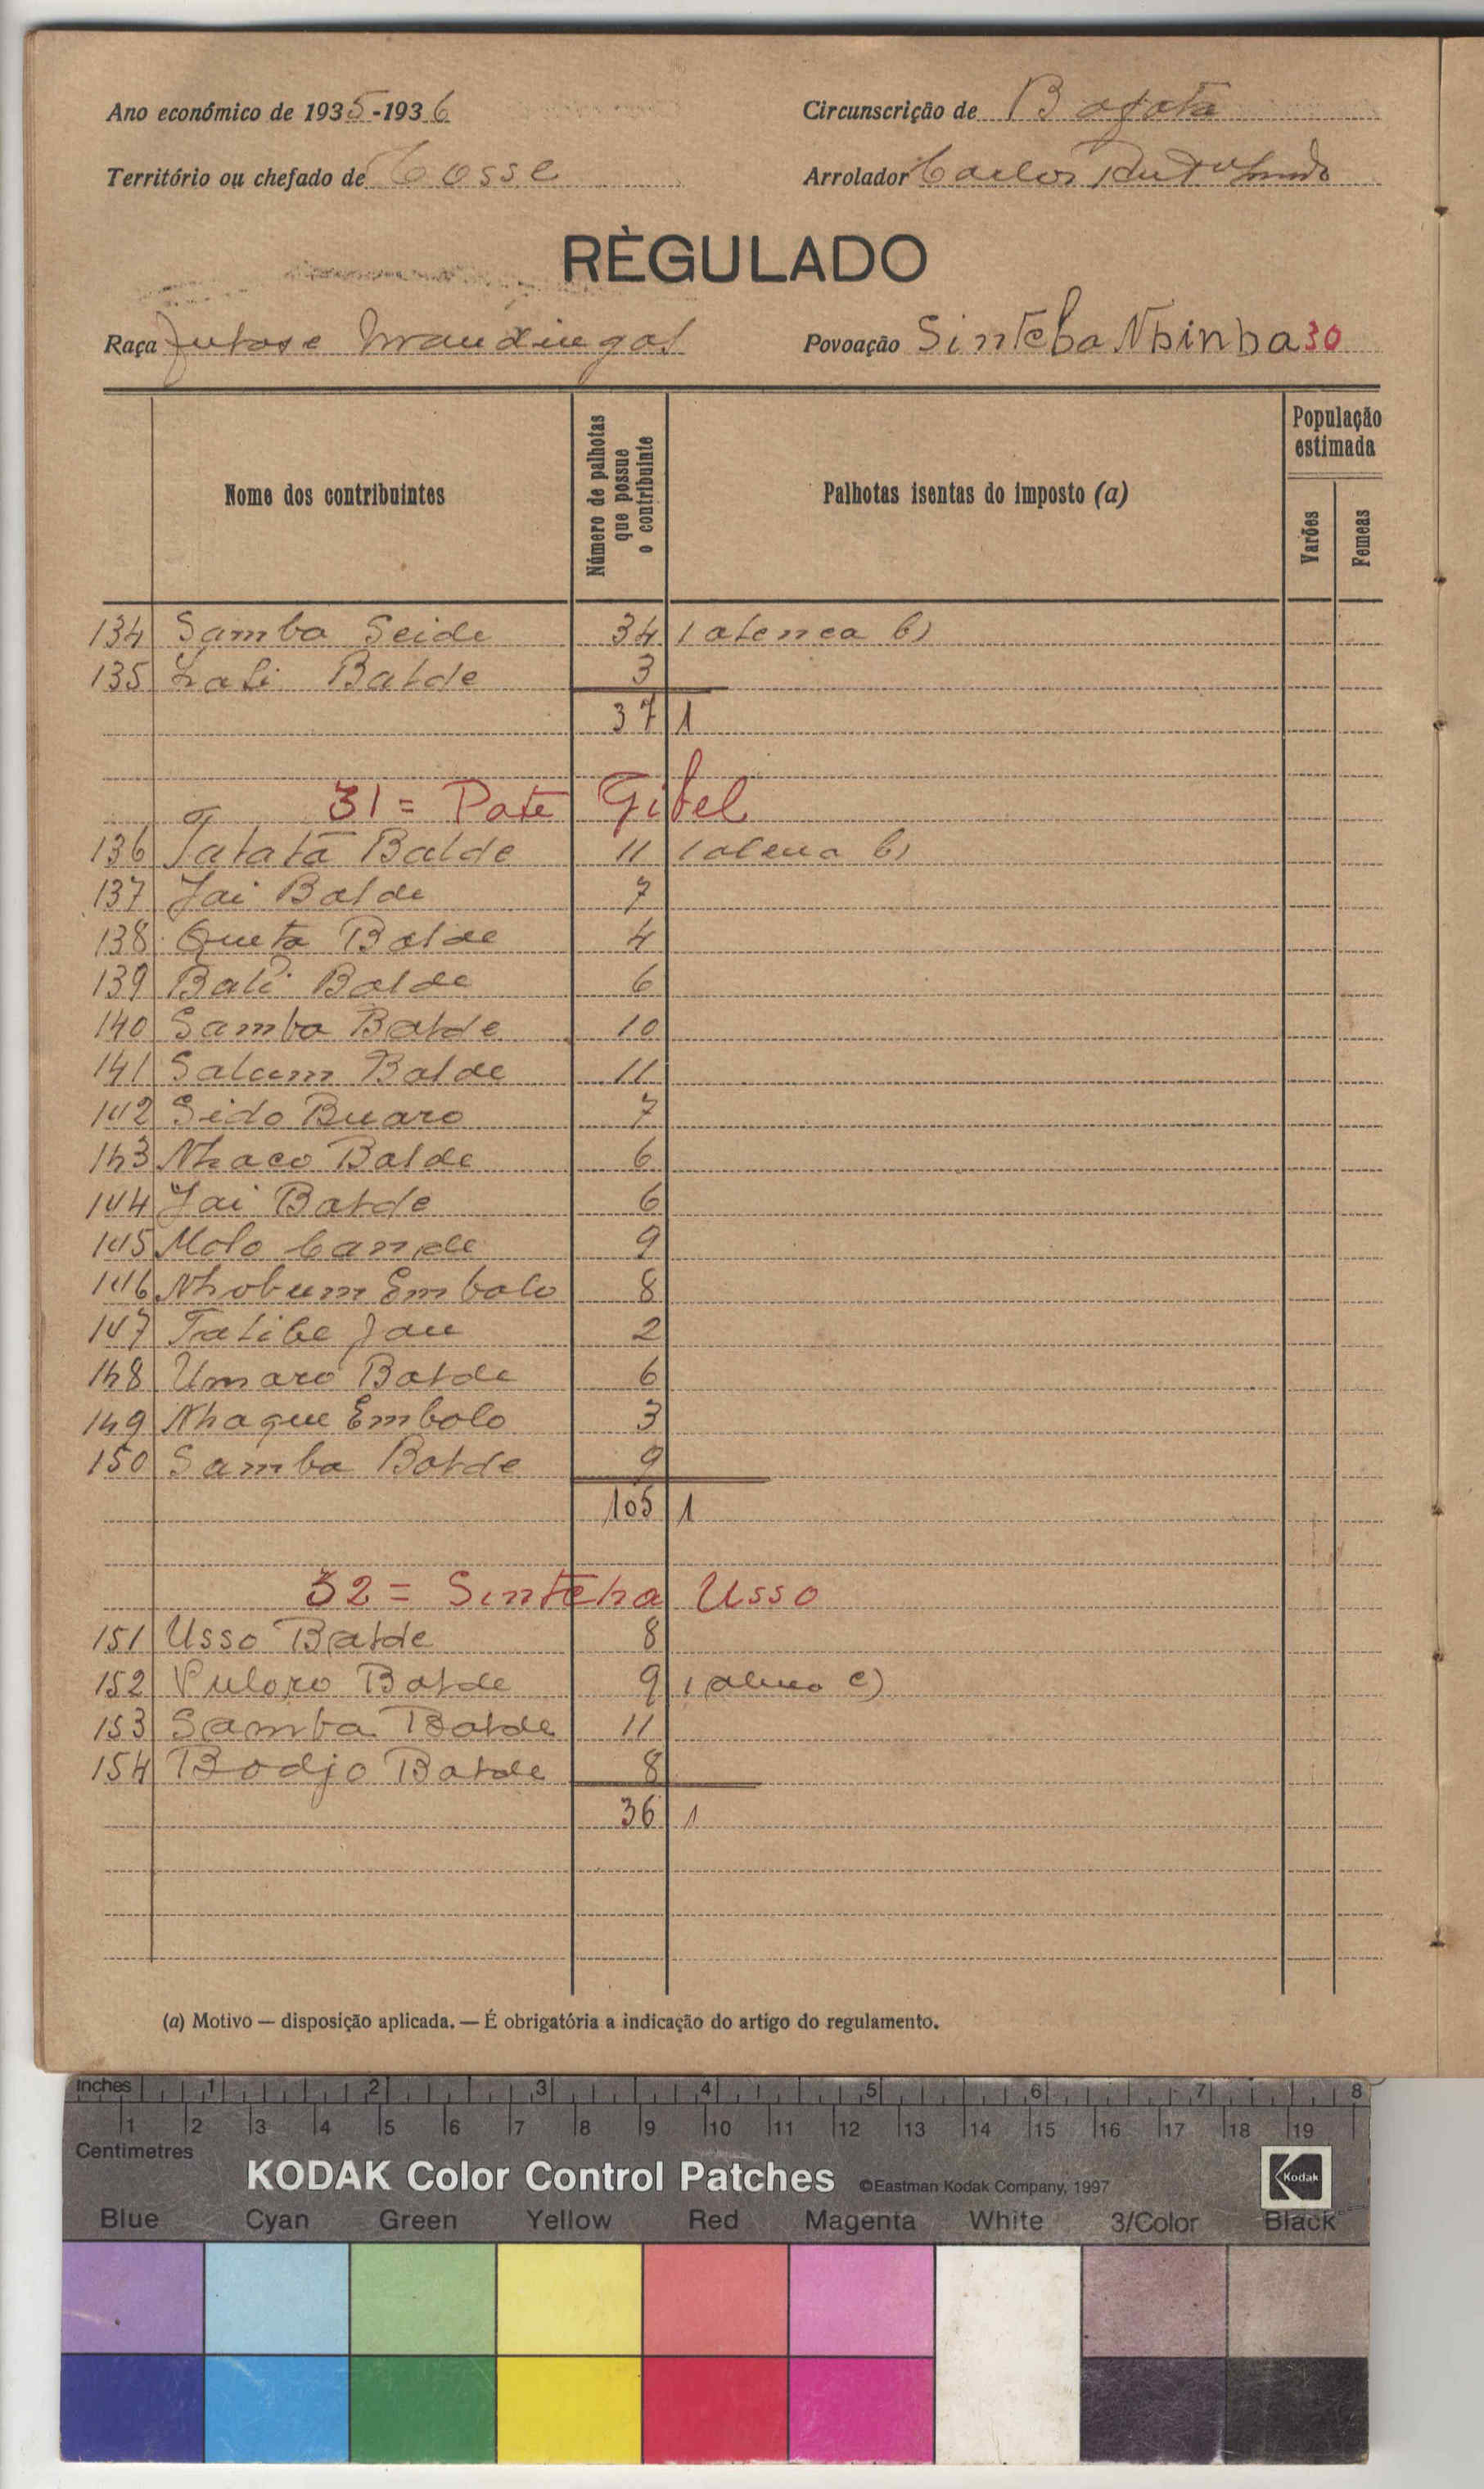 Ano económico de 1935-1936 Circunscrição de Bafata
Território ou chefado de Cosse Arrolador Carlos
RÈGULADO
Raça Fulas e Mandingas Povoação Sinteha Nhinha 30
Nome dos contribuintes Número de palhotas que possue o contribuinte Palhotas isentas do imposto (a) População estimada
Varões Femeas
134 Samba Seide 34 1 alenea b)
135 Lali Balde 3
37 1
31 = Pate Gibel
136 Tatatã Balde 11 1 alenea b)
137 Jai Balde 7
138 Queta Balde 4
139 Bali Balde 6
140 Samba Balde 10
141 Salum Balde 11
142 Sido Buaro 7
143 Nhaco Balde 6
144 Jai Balde 6
145 Molo Cande 9
146 Nhobum Embalo 8
147 Talibe Jau 2
148 Umaro Balde 6
149 Nhaque Embolo 3
150 Samba Balde 9
105 1
32 = Sinteha Usso
151 Usso Balde 8
152 Puloro Balde 9 1 alenea c)
153 Samba Balde 11
154 Bodjo Balde 8
36 1
(a) Motivo — disposição aplicada. — É obrigatória a indicação do artigo do regulamento.
inches 1 2 3 4 5 6 7 8
1 2 3 4 5 6 7 8 9 10 11 12 13 14 15 16 17 18 19
Centimetres
KODAK Color Control Patches ©Eastman Kodak Company, 1997 Kodak
Blue Cyan Green Yellow Red Magenta White 3/Color Black